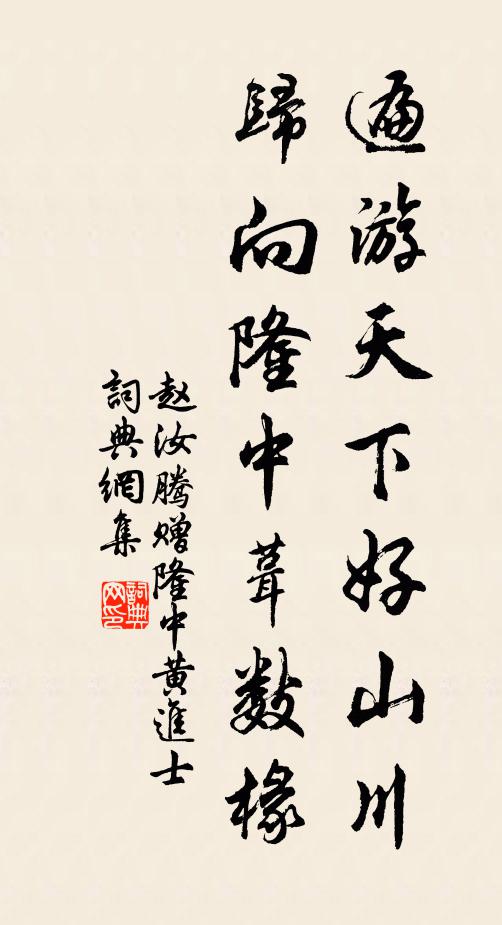 遍游天下好山川
歸向隆中葺數椽
赵汝腾赠隆中黄進士
詞典網集
詞典网印